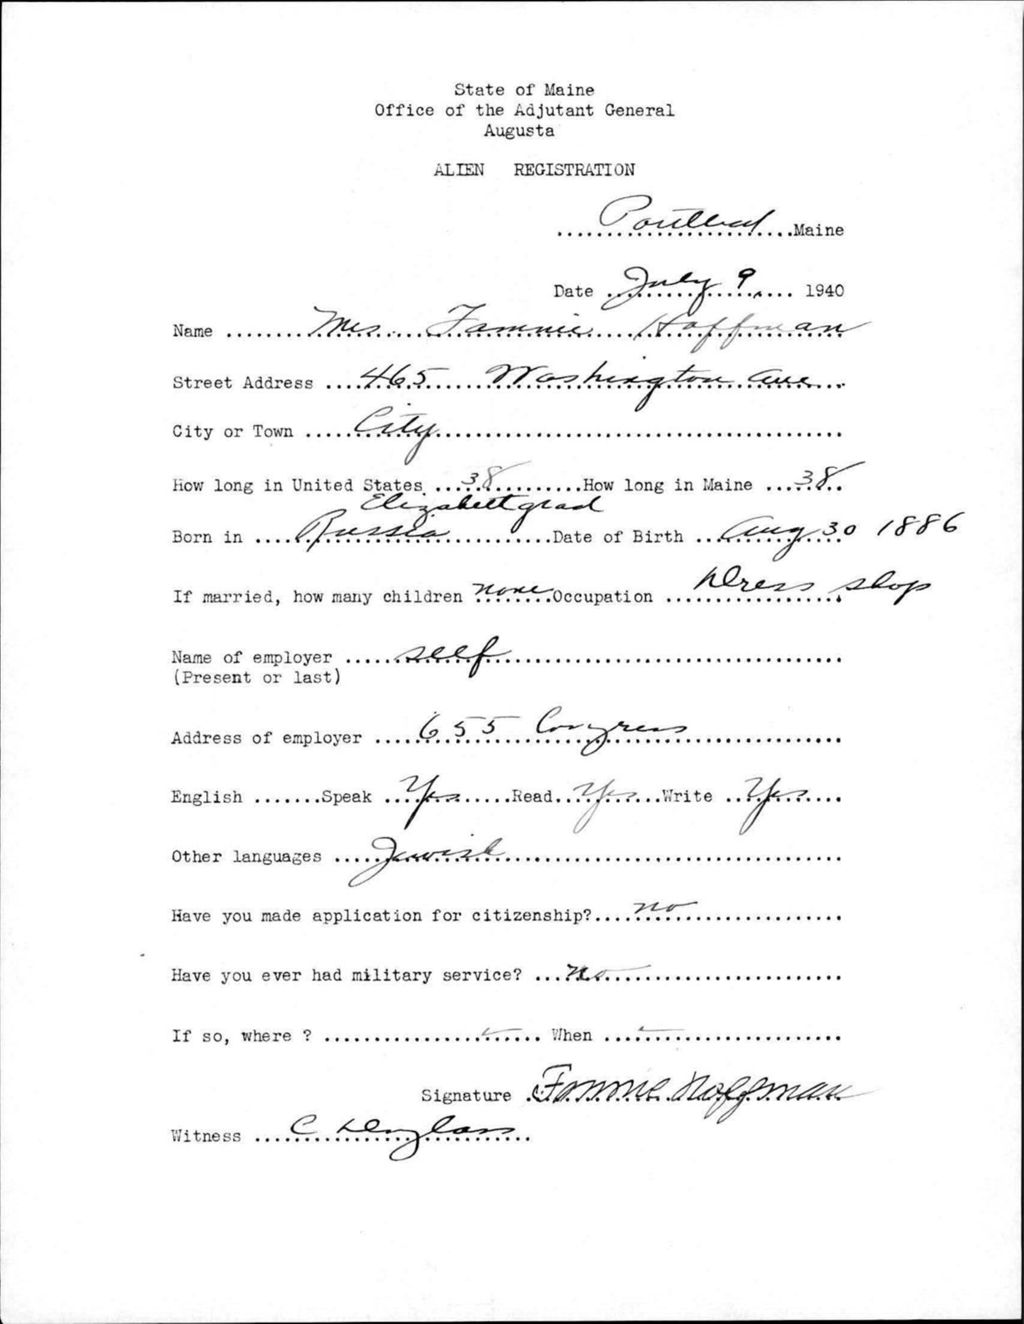 State of Maine
Office of the Adjutant General
Augusta
ALIEN REGISTRATION
Portland Maine
Date July 9 1940
Name Mrs. Fannie Hoffman
Street Address 465 Washington Ave
City or Town City
How long in United States 38 How long in Maine 38
Elizabethgrad
Born in Russia Date of Birth Aug 30 1886
If married, how many children none Occupation Dress shop
Name of employer self
(Present or last)
Address of employer 655 Congress
English Speak Yes Read Yes Write Yes
Other languages Jewish
Have you made application for citizenship? no
Have you ever had military service? No
If so, where ? - When -
Signature Fannie Hoffman
Witness C Douglass